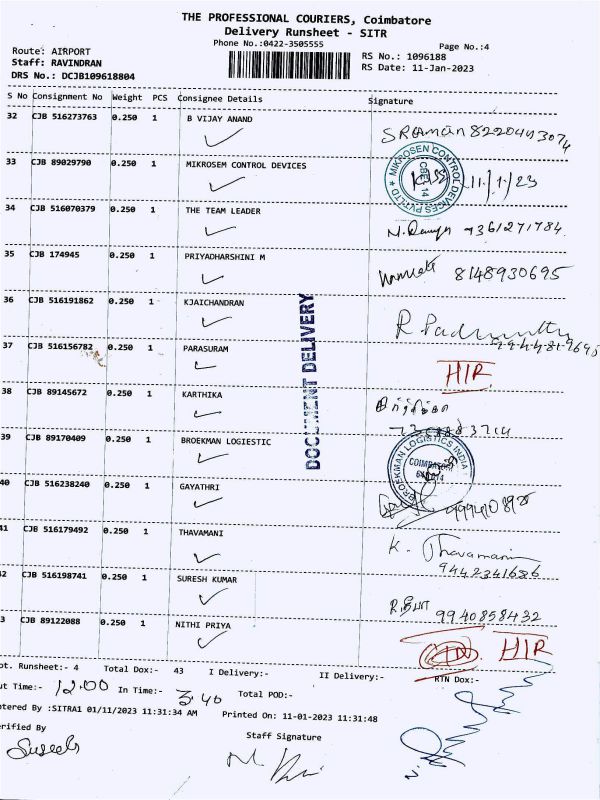 THE PROFESSIONAL COURIERS, Coimbatore
Delivery Runsheet - SITR
Phone No.:0422-3505555
Page No.:4
Route: AIRPORT
RS No.: 1096188
Staff: RAVINDRAN
RS Date: 11-Jan-2023
DRS No.: DCJB109618804
S No Consignment No Weight PCS Consignee Details Signature
32 CJB 516273763 0.250 1 B VIJAY ANAND
33 CJB 89029790 0.250 1 MIKROSEM CONTROL DEVICES 11/1/23
MIKROSEN CONTROL DEVICES PVT LTD
CBE 14
34 CJB 516070379 0.250 1 THE TEAM LEADER
35 CJB 174945 0.250 1 PRIYADHARSHINI M 8148930695
36 CJB 516191862 0.250 1 KJAICHANDRAN
37 CJB 516156782 0.250 1 PARASURAM HIR
38 CJB 89145672 0.250 1 KARTHIKA
39 CJB 89170409 0.250 1 BROEKMAN LOGIESTIC
BROEKMAN LOGISTICS INDIA
COIMBATORE
40 CJB 516238240 0.250 1 GAYATHRI
41 CJB 516179492 0.250 1 THAVAMANI K. Thavamani
9442341686
42 CJB 516198741 0.250 1 SURESH KUMAR 9940858432
3 CJB 89122088 0.250 1 NITHI PRIYA HIR
DOCUMENT DELIVERY
ot. Runsheet:- 4 Total Dox:- 43 I Delivery:- II Delivery:- RTN Dox:-
ut Time:- 12.00 In Time:- 3.40 Total POD:-
tered By :SITRA1 01/11/2023 11:31:34 AM Printed On: 11-01-2023 11:31:48
erified By Staff Signature